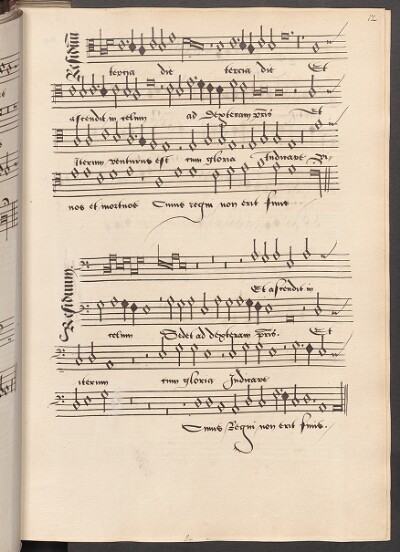 12
Residuum
tercia die tercia die Et
ascendit in celum ad dexteram pr̄is Et
iterum venturus est cum gloria Iudicare vi
nos et mortuos Cuius regni non erit finis
Residuum
Et ascendit in
celum Sedet ad dexteram pr̄is. Et
iterum cum gloria Iudicare
Cuius Regni non erit finis.